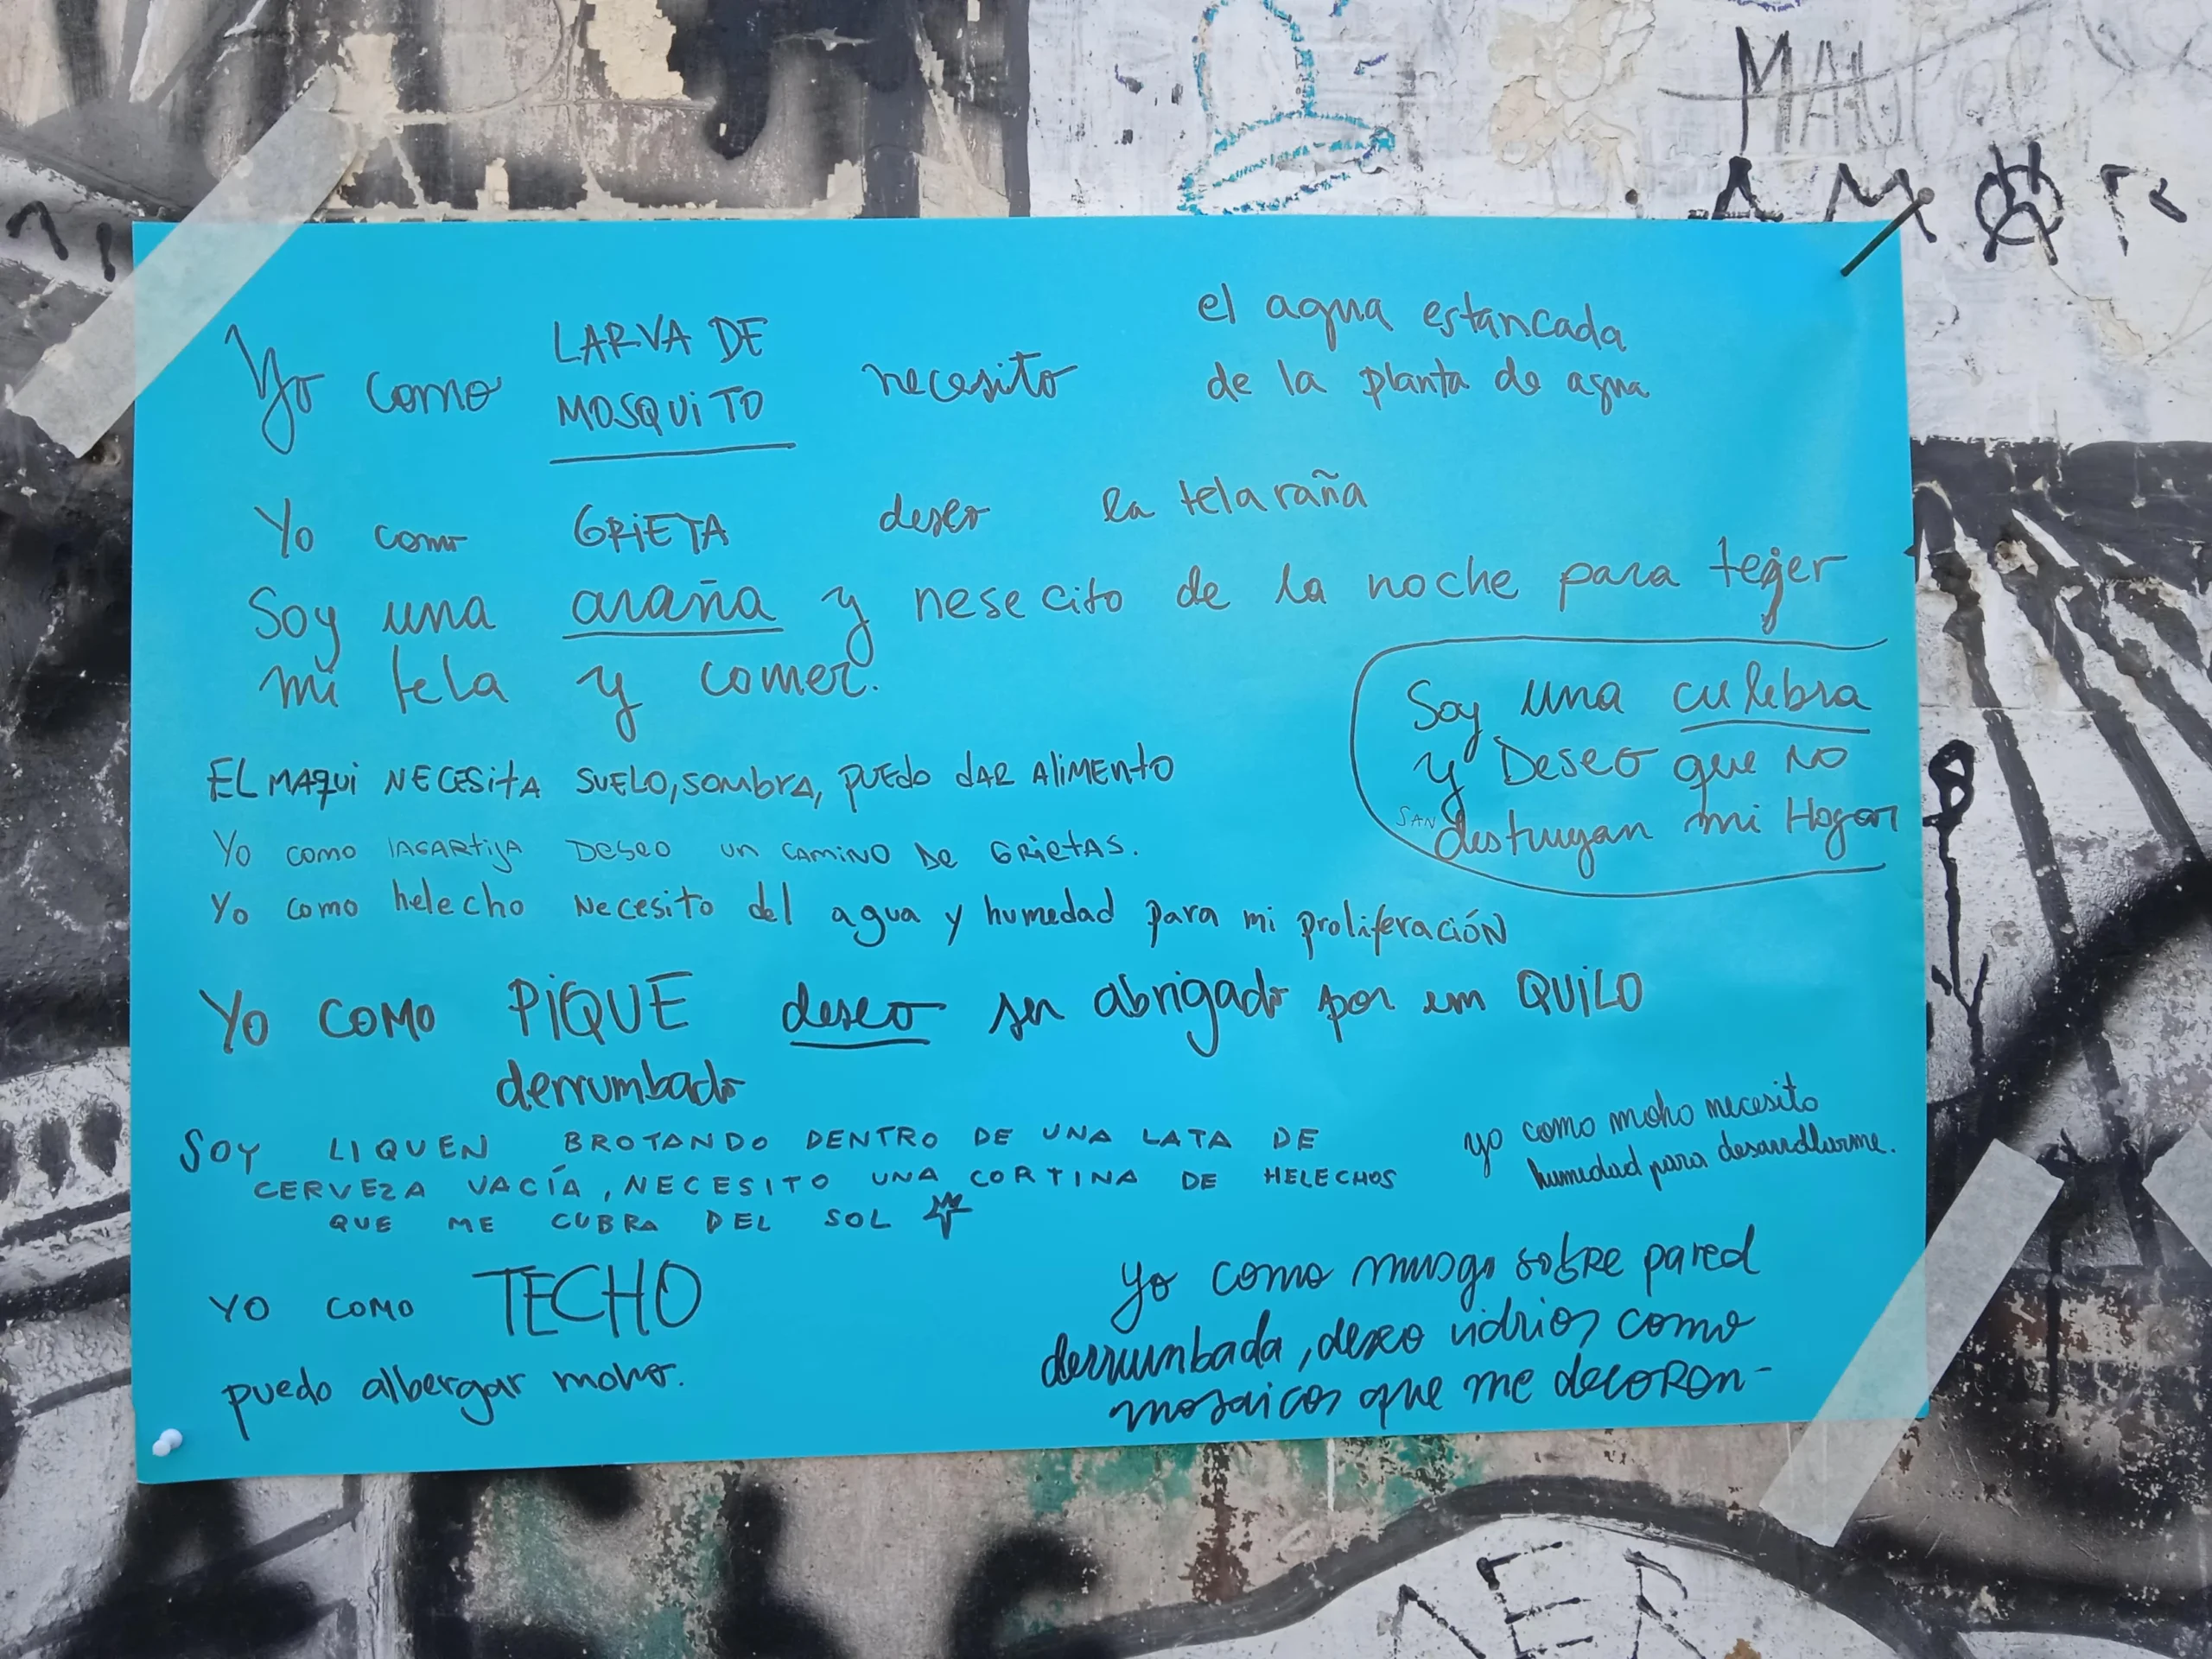 MAU
AMAR
Yo como LARVA DE MOSQUITO necesito el agua estancada
de la planta de agua
Yo como GRIETA deseo la telaraña
Soy una araña y nesecito de la noche para tejer
mi tela y comer.
Soy una culebra
y Deseo que no
destruyan mi Hogar
SAN
EL MAQUI NECESITA SUELO, SOMBRA, PUEDO DAR ALIMENTO
Yo como LAGARTIJA DESEO un CAMINO DE GRIETAS.
Yo como helecho Necesito del agua y humedad para mi proliferación
Yo COMO PIQUE deseo ser abrigado por um QUILO
derrumbado
SOY LIQUEN BROTANDO DENTRO DE UNA LATA DE
CERVEZA VACÍA, NECESITO UNA CORTINA DE HELECHOS
QUE ME CUBRA DEL SOL
yo como moho necesito
humedad para desarrollarme.
YO COMO TECHO
puedo albergar moho.
Yo como musgo sobre pared
derrumbada, deseo vidrios como
mosaicos que me decoren-